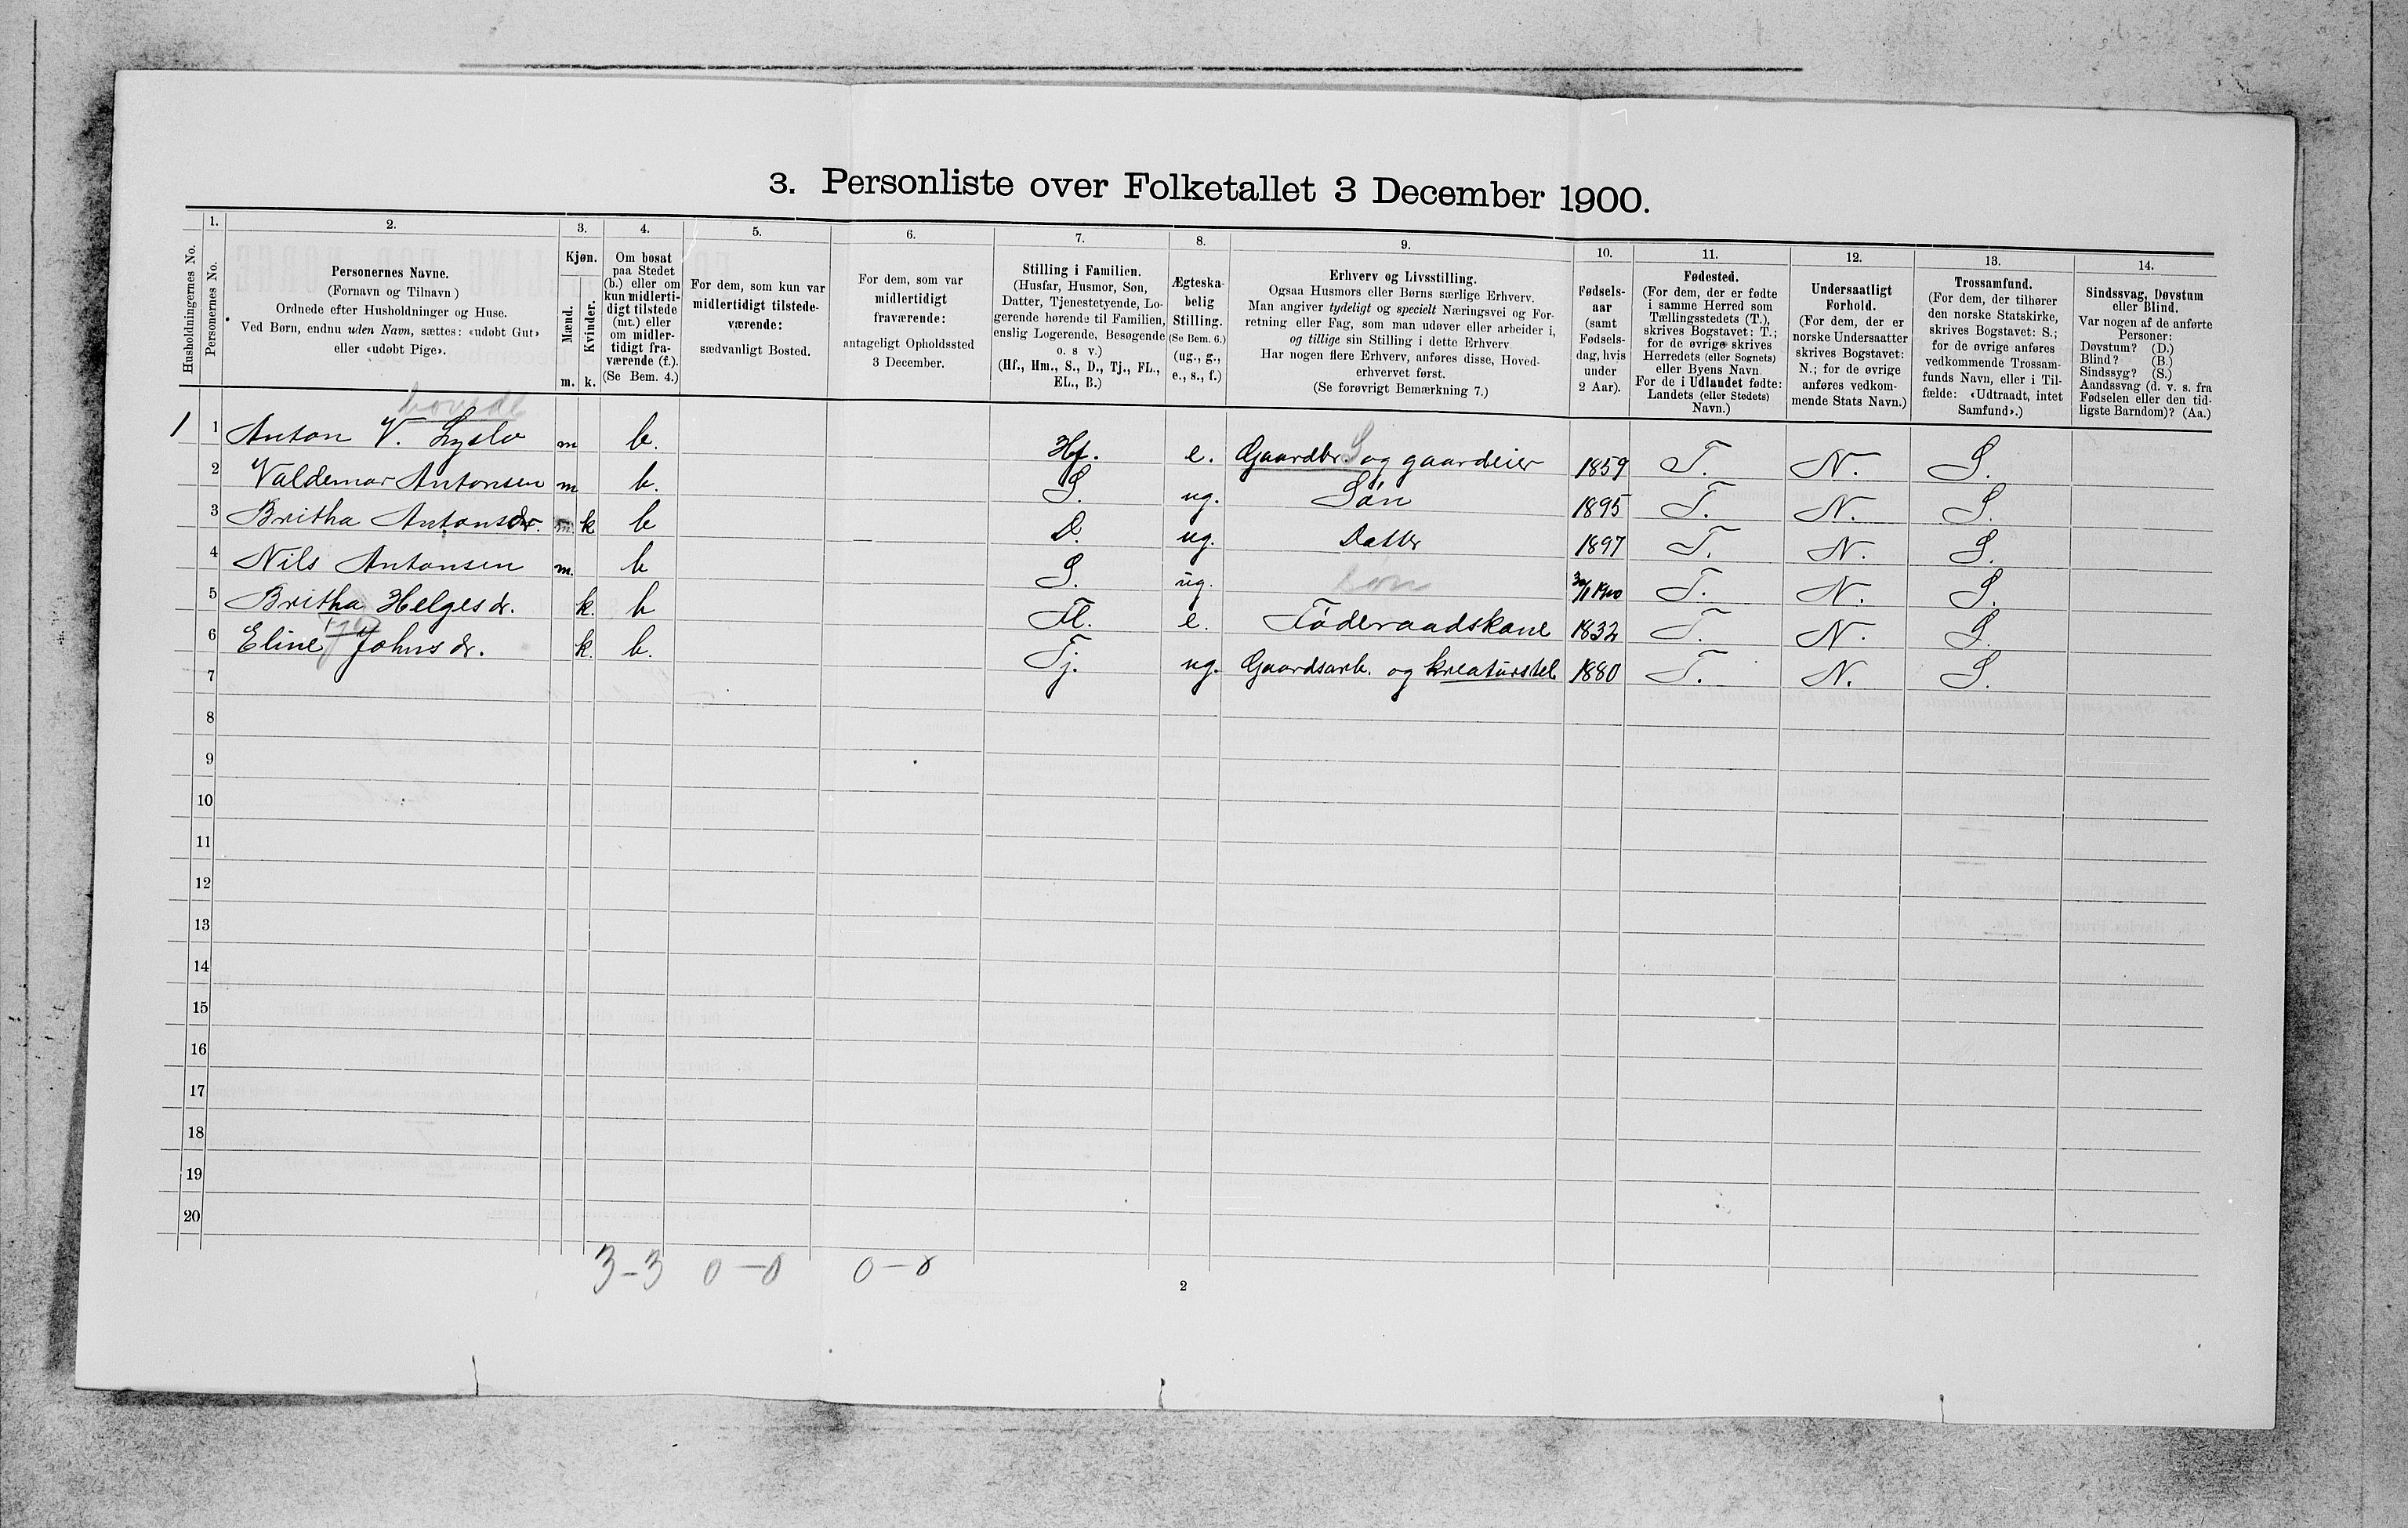 3. Personliste over Folketallet 3 December 1900.
1. 2. 3. 4. 5. 6. 7. 8. 9. 10. 11. 12. 13. 14.
Husholdningernes No.
Personernes No.
Personernes Navne.
(Fornavn og Tilnavn)
Ordnede efter Husholdninger og Huse.
Ved Børn, endnu uden Navn, sættes: «udøbt Gut»
eller «udøbt Pige».
Kjøn.
Mænd.
Kvinder.
m. k.
Om bosat
paa Stedet
(b.) eller om
kun midlerti-
digt tilstede
(mt.) eller
om midler-
tidigt fra-
værende (f.).
(Se Bem. 4.)
For dem, som kun var
midlertidigt tilstede-
værende:
sædvanligt Bosted.
For dem, som var
midlertidigt
fraværende:
antageligt Opholdssted
3 December.
Stilling i Familien.
(Husfar, Husmor, Søn,
Datter, Tjenestetyende, Lo-
gerende hørende til Familien,
enslig Logerende, Besøgende
o. s v.)
(Hf., Hm., S., D., Tj., FL.,
EL., B.)
Ægteska-
belig
Stilling.
(Se Bem. 6.)
(ug., g.,
e., s., f.)
Erhverv og Livsstilling.
Ogsaa Husmors eller Børns særlige Erhverv.
Man angiver tydeligt og specielt Næringsvei og For-
retning eller Fag, som man udøver eller arbeider i,
og tillige sin Stilling i dette Erhverv
Har nogen flere Erhverv, anføres disse, Hoved-
erhvervet først.
(Se forøvrigt Bemærkning 7.)
Fødsels-
aar
(samt
Fødsels-
dag, hvis
under
2 Aar).
Fødested.
(For dem, der er fødte
i samme Herred som
Tællingsstedets (T.),
skrives Bogstavet: T.;
for de øvrige skrives
Herredets (eller Sognets)
eller Byens Navn
For de i Udlandet fødte:
Landets (eller Stedets)
Navn.)
Undersaatligt
Forhold.
(For dem, der er
norske Undersaatter
skrives Bogstavet:
N.; for de øvrige
anføres vedkom-
mende Stats Navn.)
Trossamfund.
(For dem, der tilhører
den norske Statskirke,
skrives Bogstavet: S.;
for de øvrige anføres
vedkommende Trossam-
funds Navn, eller i Til-
fælde: «Udtraadt, intet
Samfund».)
Sindssvag, Døvstum
eller Blind.
Var nogen af de anførte
Personer:
Døvstum? (D.)
Blind? (B.)
Sindssyg? (S.)
Aandssvag (d. v. s. fra
Fødselen eller den tid-
ligste Barndom)? (Aa.)
1 1 Anton V. Lyslo m b. Hf. e. Gaardbr S og gaardeier 1859 T. N. S.
2 Valdemar Antonsen m b. S. ug. Søn 1895 T. N. S.
3 Britha Antonsdr. m. k b D. ug. Datter 1897 T. N. S.
4 Nils Antonsen m. b S. ug. Søn T. N. S.
5 Britha Helgesdr. k. b Fl. e. Føderaadskone 1832 T. N. S.
6 Eline Johnsdr. k. b. Tj. ug. Gaardsarb. og kreaturstel 1880 T. N. S.
7
8
9
10
11
12
13
14
15
16
17
18
19
20
3-3 0-0 0-0
2